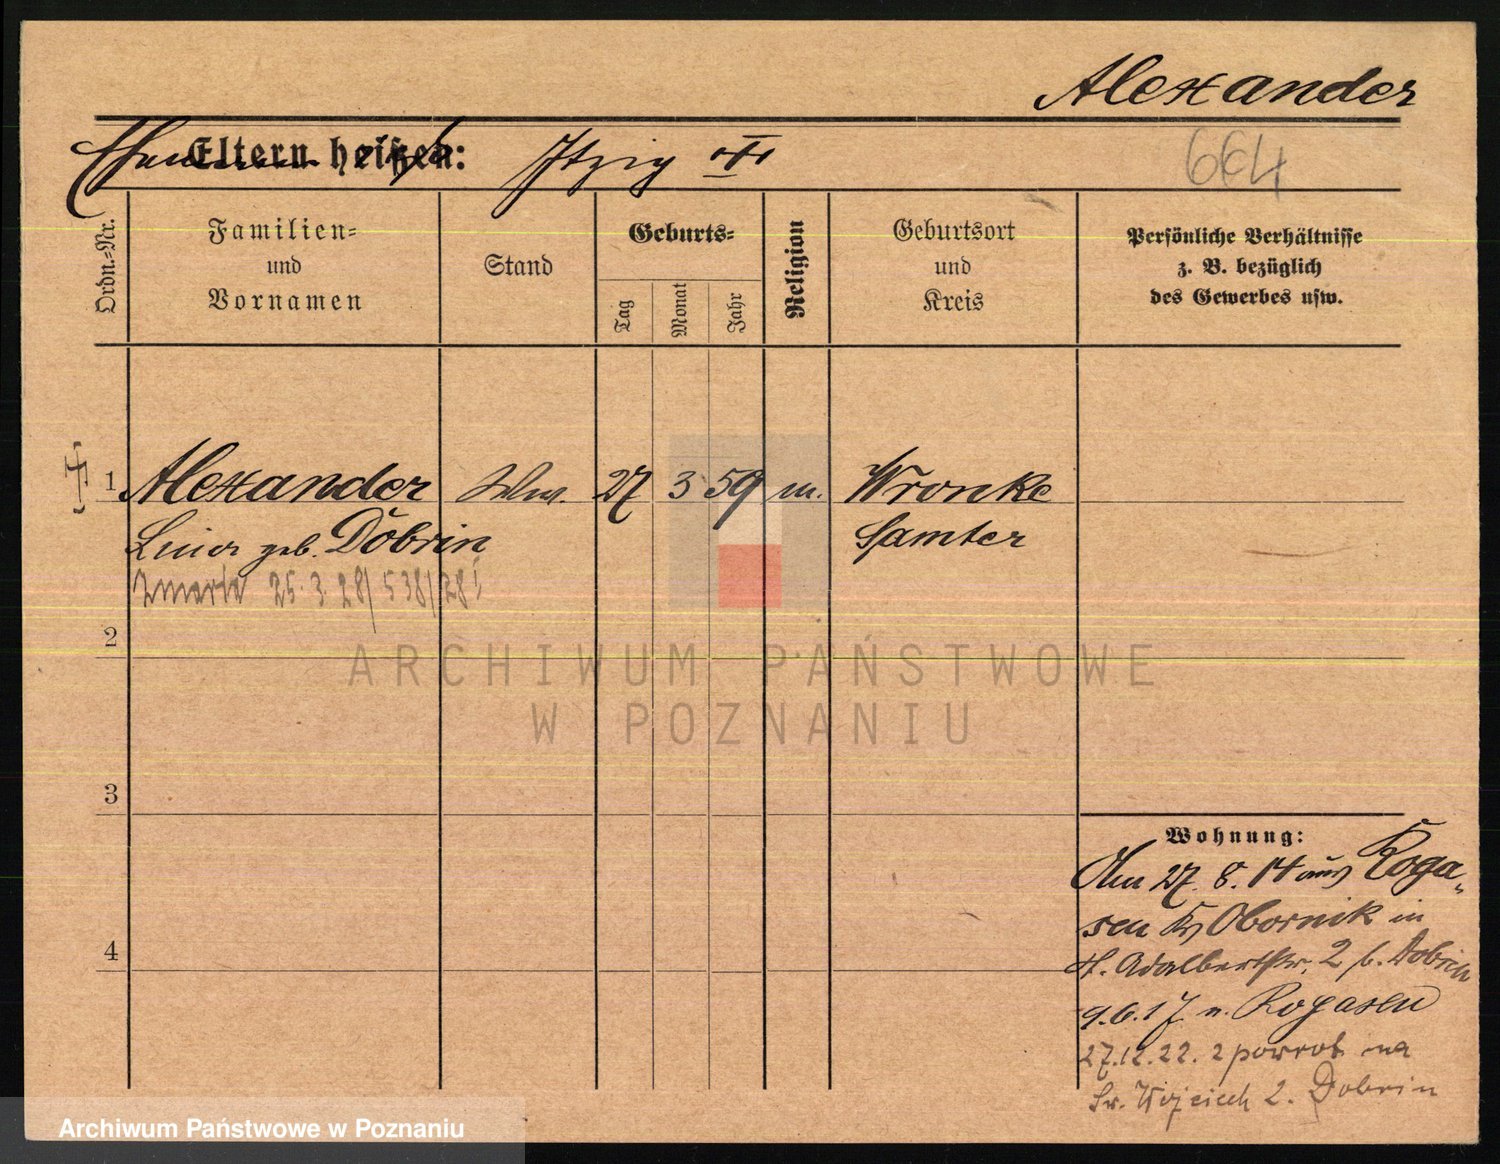 Alexander
664
Eltern heißen: Itzig
Ordn.-Nr.
Familien-
und
Vornamen
Stand
Geburts-
Tag
Monat
Jahr
Religion
Geburtsort
und
Kreis
Persönliche Verhältnisse
z. B. bezüglich
des Gewerbes usw.
1 Alexander Wwe. 27 3 59 m. Wronke
geb. Dobrin Samter
zmarła 25.3.28/538/28
2
3
4
Wohnung:
Am 27. 8. 14 aus Roga-
sen Kr Obornik in
St. Adalbertstr. 2 b. Dobrin
9.6.17 n. Rogasen
27.12.22. z powrot na
Św. Wojciech 2. Dobrin
ARCHIWUM PAŃSTWOWE
W POZNANIU
Archiwum Państwowe w Poznaniu